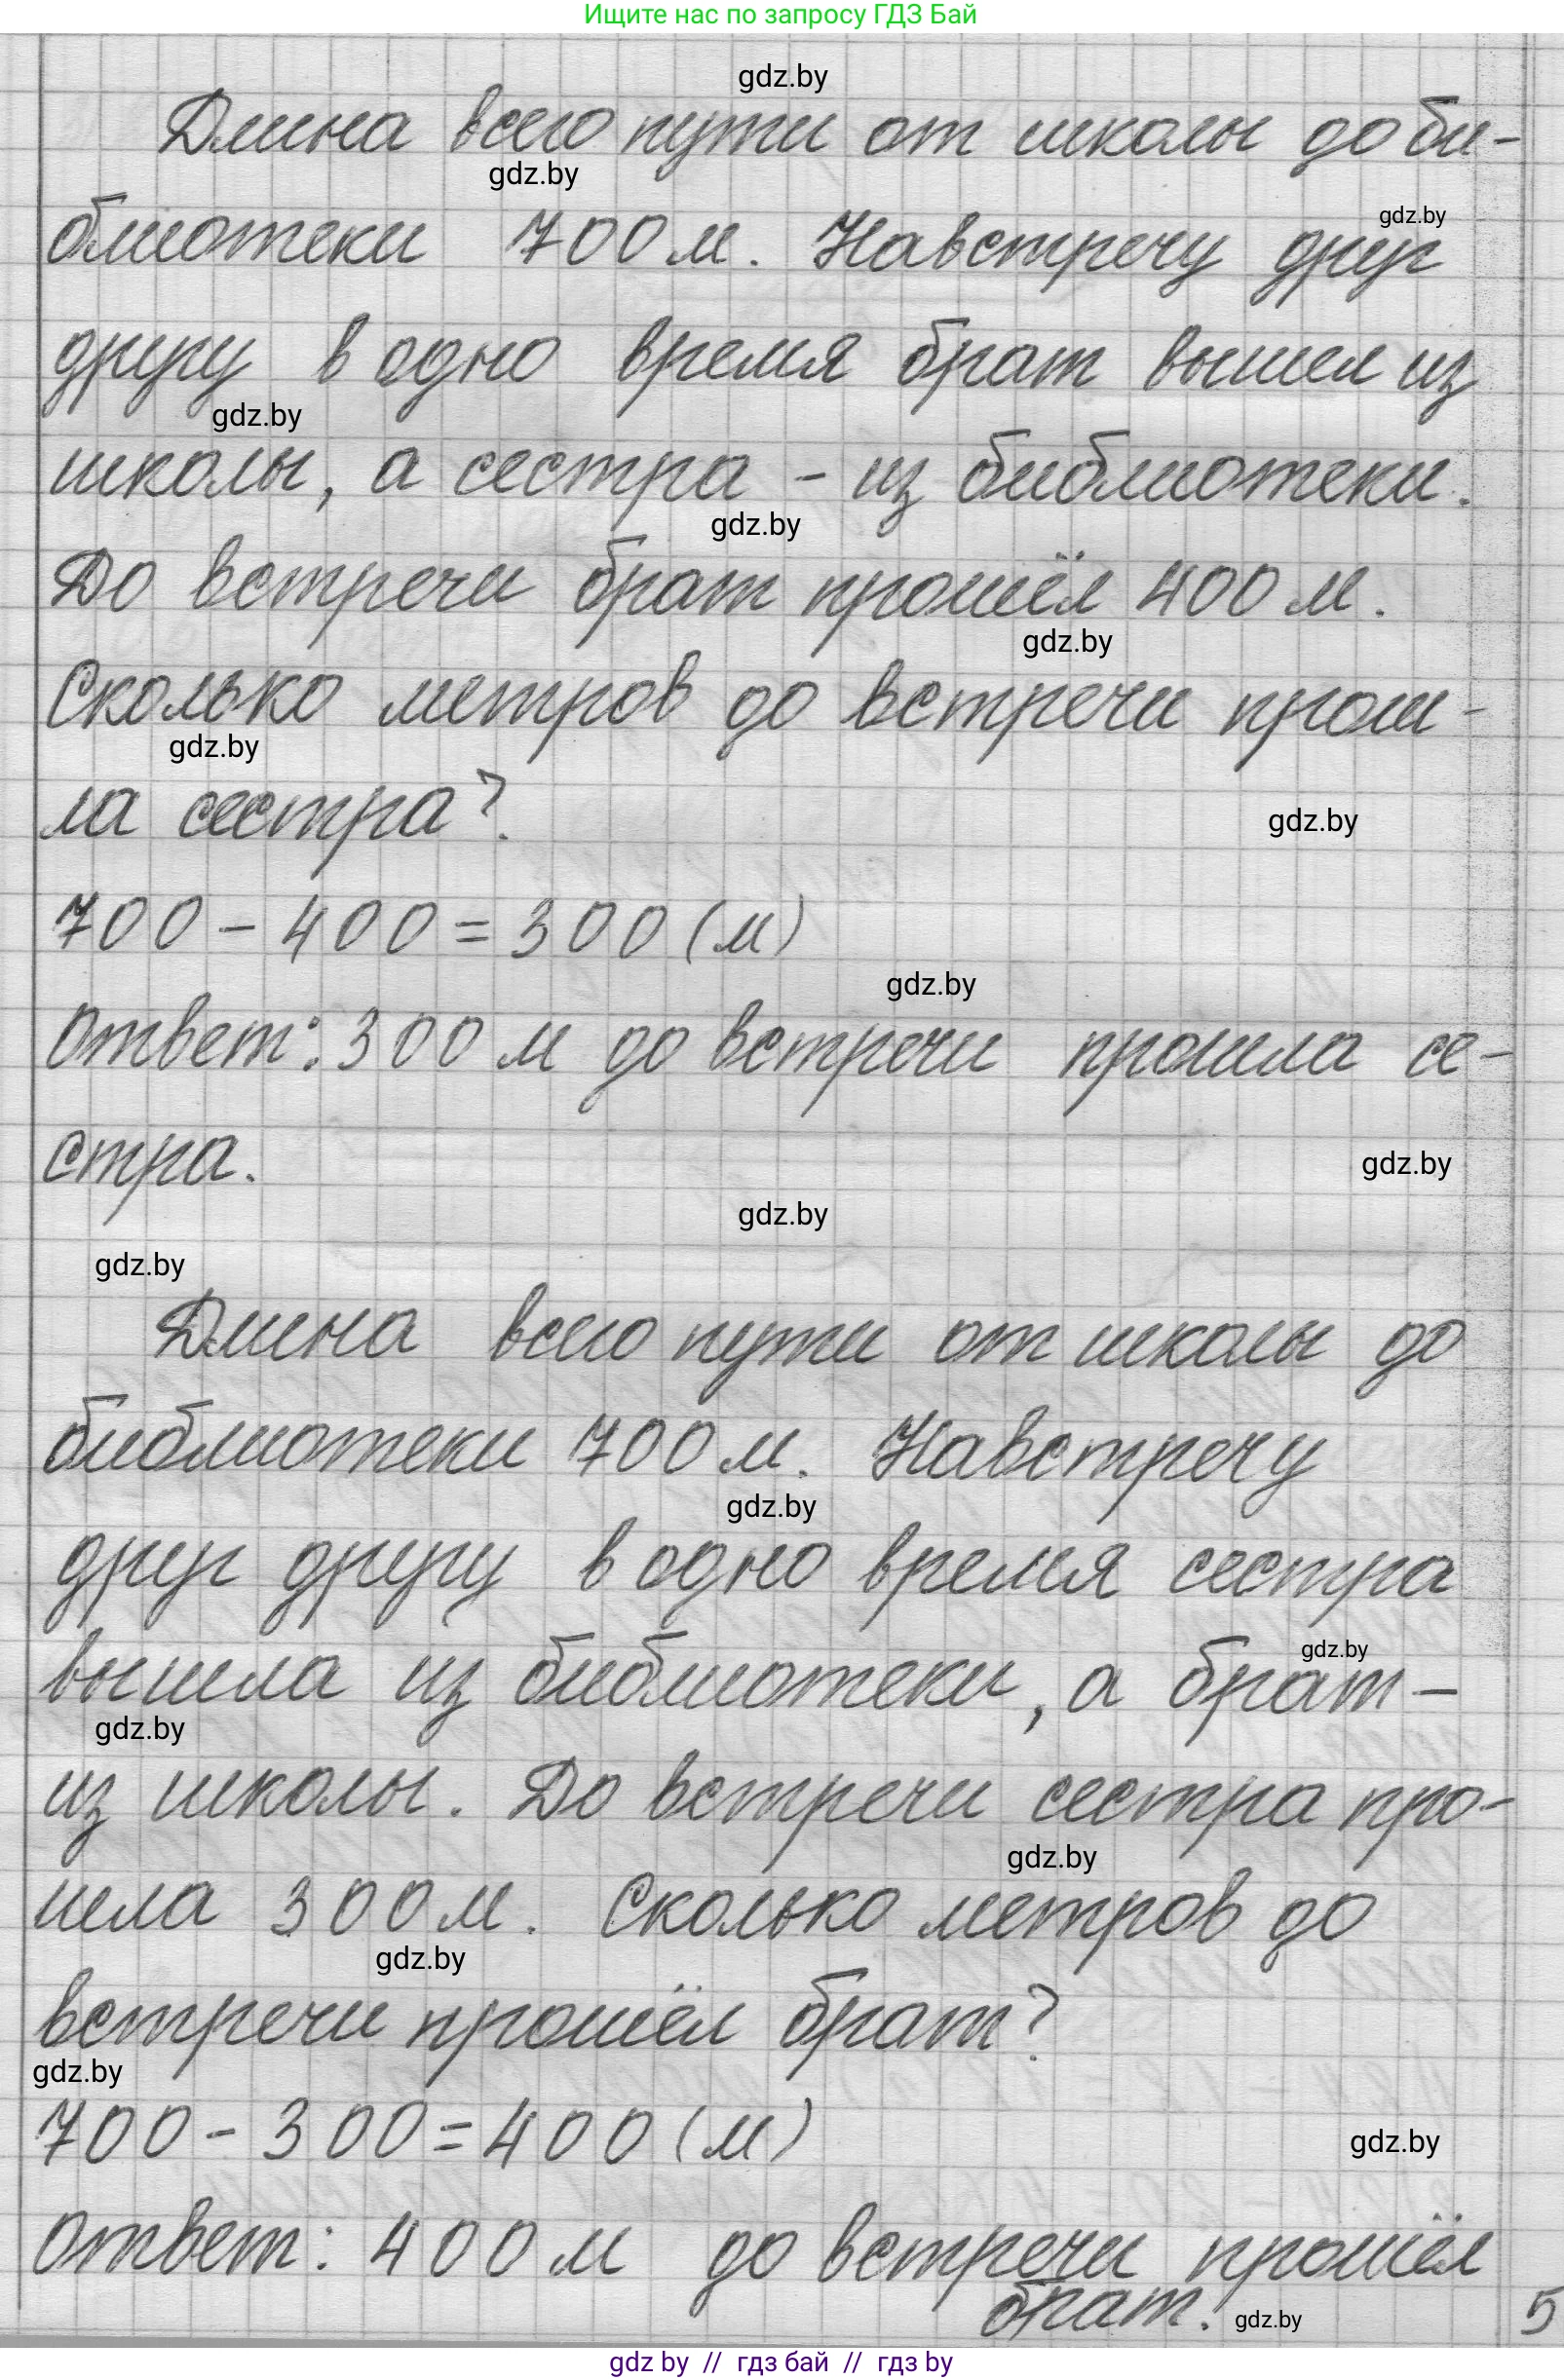 Ищите нас по запросу ГДЗ Бай
gdz.by
Длина всего пути от школы до би-
gdz.by
gdz.by
блиотеки 700 м. Навстречу друг
другу в одно время брат вышел из
gdz.by
школы, а сестра - из библиотеки.
gdz.by
До встречи брат прошёл 400 м.
gdz.by
Сколько метров до встречи прош-
gdz.by
ла сестра?
gdz.by
700 - 400 = 300 (м)
gdz.by
Ответ: 300 м до встречи прошла се-
стра.
gdz.by
gdz.by
gdz.by
Длина всего пути от школы до
библиотеки 700 м. Навстречу
gdz.by
друг другу в одно время сестра
gdz.by
вышла из библиотеки, а брат -
gdz.by
из школы. До встречи сестра про-
gdz.by
шла 300 м. Сколько метров до
gdz.by
встречи прошёл брат?
gdz.by
700 - 300 = 400 (м)
gdz.by
Ответ: 400 м до встречи прошёл
брат. gdz.by 5
gdz by // гдз бай // гдз by